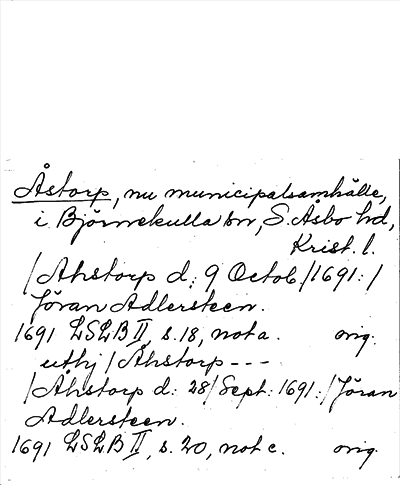 Åstorp, nu municipalsamhälle,
i Björnekulla sn, S. Åsbo hd,
Krist. l.
/Åhstorp d. 9 Octob./1691:/
Jöran Adlersteen.
1691 LSLB II, s. 18, not a. orig.
uthj /Åhstorp ---
/Åhstorp d: 28/Sept: 1691:/Jöran
Adlersteen.
1691 LSLB II, s. 20, not c. orig.